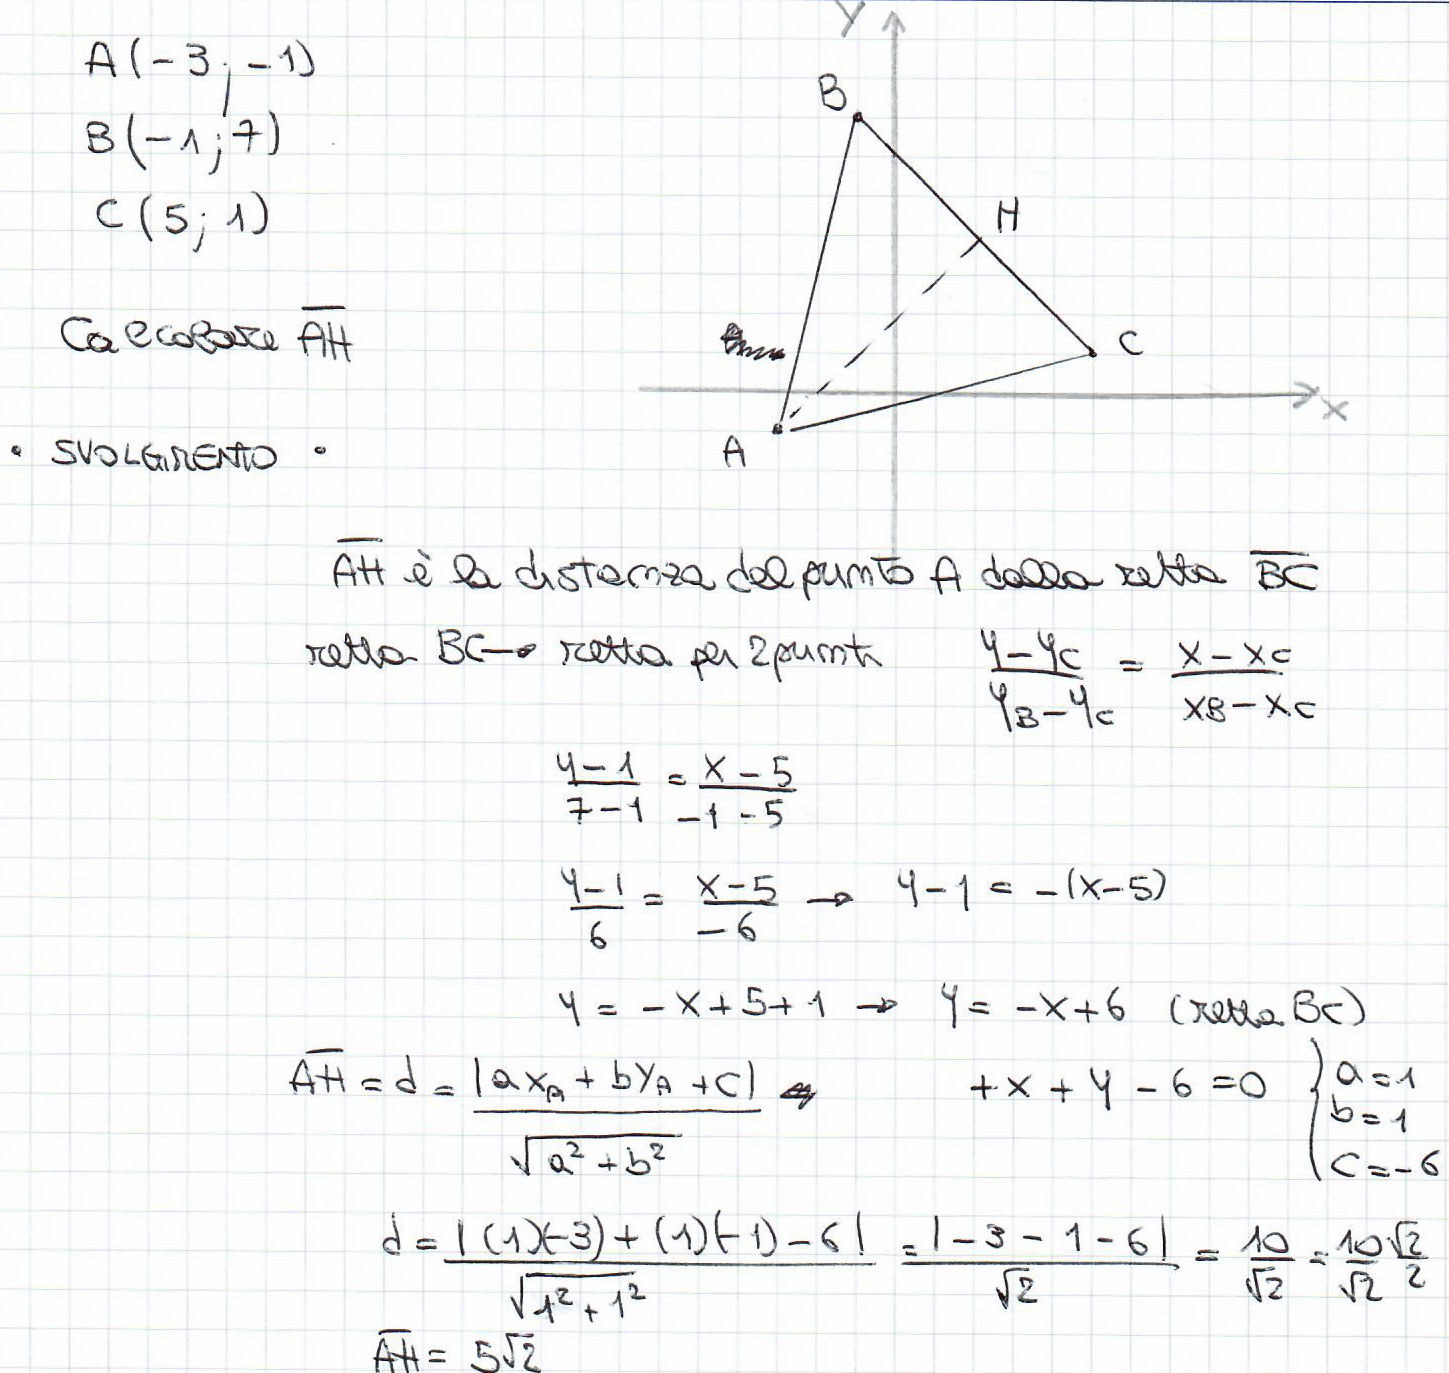 A(-3; -1)
B(-1; 7)
C(5; 1)
Y
B
H
C
A
X
Calcolare A̅H̅
• SVOLGIMENTO •
A̅H̅ è la distanza del punto A dalla retta B̅C̅
retta BC → retta per 2 punti (y-yC)/(yB-yC) = (x-xC)/(xB-xC)
(y-1)/(7-1) = (x-5)/(-1-5)
(y-1)/6 = (x-5)/-6 → y-1 = -(x-5)
y = -x+5+1 → y = -x+6 (retta BC)
A̅H̅ = d = |axA + byA + c|/√(a²+b²) +x+y-6=0 { a=1 b=1 c=-6
d = |(1)(-3)+(1)(-1)-6|/√(1²+1²) = |-3-1-6|/√2 = 10/√2 = 10/√2 √2/2
A̅H̅ = 5√2